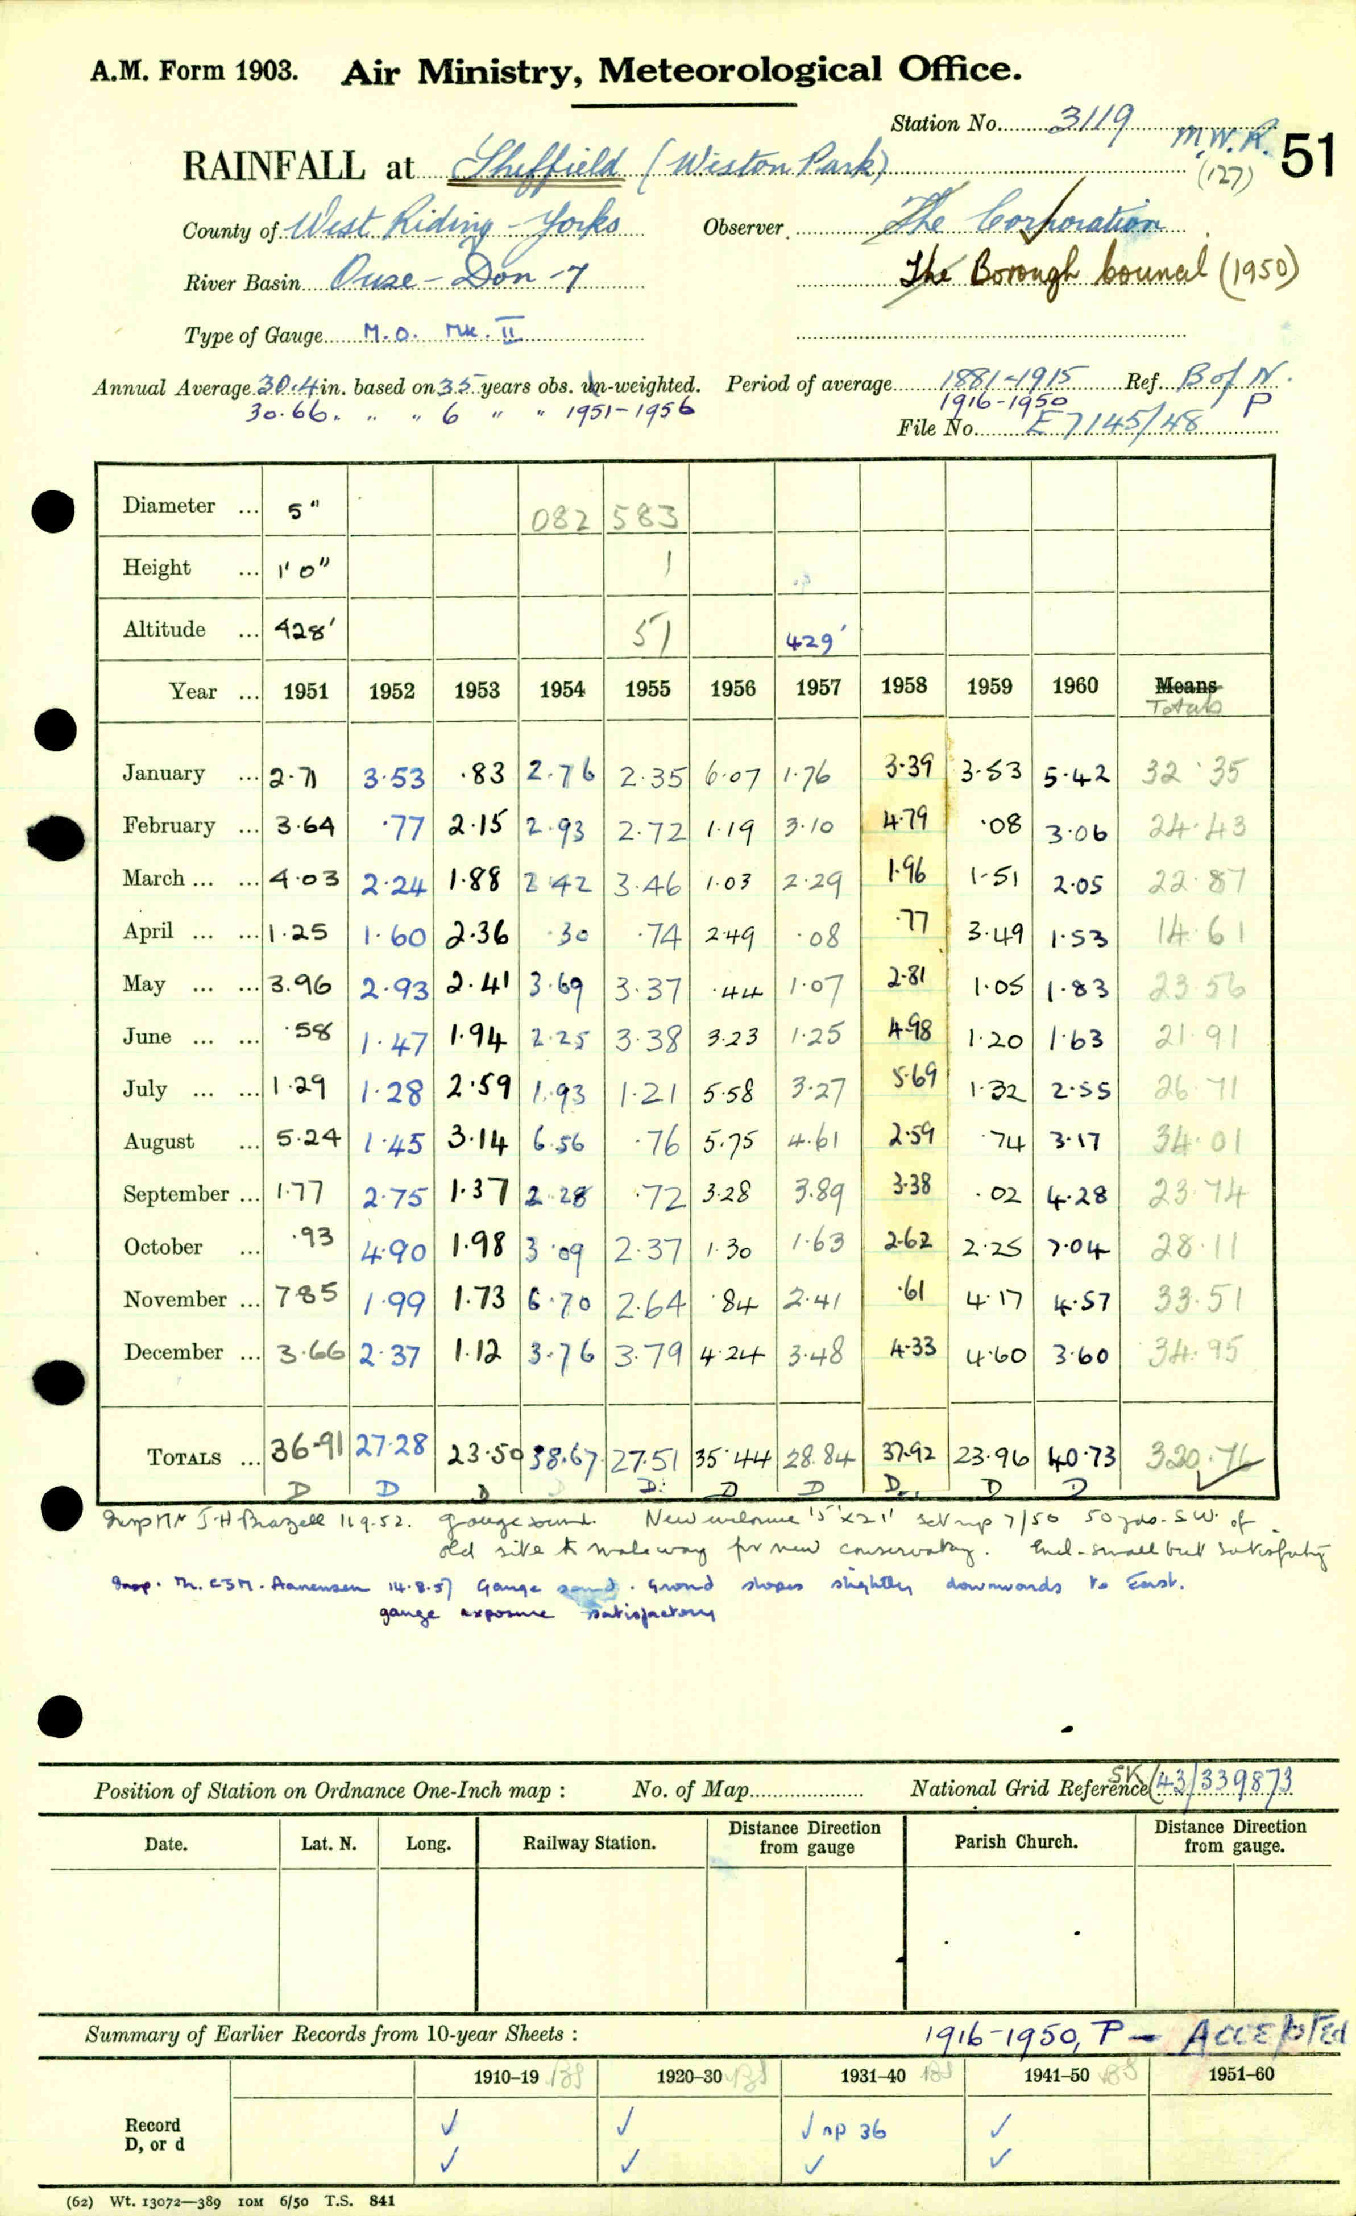 A.M. Form 1903. Air Ministry, Meteorological Office.
Station No. 3119 M.W.R. 51
RAINFALL at Sheffield (Weston Park) (127)
County of West Riding - Yorks Observer The Corporation
River Basin Ouse - Don - 7 The Borough Council (1950)
Type of Gauge M.O. Mk. II
Annual Average 30.4 in. based on 35 years obs. un-weighted. Period of average 1881-1915 Ref. B of N.
30.66 " " " 6 " " 1951-1956 1916-1950 P
File No. E7145/48
Diameter ... 5" 082 583
Height ... 1' 0" 1
Altitude ... 428' 51 429'
Year ... 1951 1952 1953 1954 1955 1956 1957 1958 1959 1960 Means
Totals
January ... 2.71 3.53 .83 2.76 2.35 6.07 1.76 3.39 3.53 5.42 32.35
February ... 3.64 .77 2.15 2.93 2.72 1.19 3.10 4.79 .08 3.06 24.43
March ... ... 4.03 2.24 1.88 2.42 3.46 1.03 2.29 1.96 1.51 2.05 22.87
April ... ... 1.25 1.60 2.36 .30 .74 2.49 .08 .77 3.49 1.53 14.61
May ... ... 3.96 2.93 2.41 3.69 3.37 .44 1.07 2.81 1.05 1.83 23.56
June ... ... .58 1.47 1.94 2.25 3.38 3.23 1.25 4.98 1.20 1.63 21.91
July ... ... 1.29 1.28 2.59 1.93 1.21 5.58 3.27 5.69 1.32 2.55 26.71
August ... 5.24 1.45 3.14 6.56 .76 5.75 4.61 2.59 .74 3.17 34.01
September ... 1.77 2.75 1.37 2.28 .72 3.28 3.89 3.38 .02 4.28 23.74
October ... .93 4.90 1.98 3.09 2.37 1.30 1.63 2.62 2.25 7.04 28.11
November ... 7.85 1.99 1.73 6.70 2.64 .84 2.41 .61 4.17 4.57 33.51
December ... 3.66 2.37 1.12 3.76 3.79 4.24 3.48 4.33 4.60 3.60 34.95
TOTALS ... 36.91 27.28 23.50 38.67 27.51 35.44 28.84 37.92 23.96 40.73 320.76
D D D D D D D D D D
Insp Mr J.H Brazell 11.9.52. gauge sound. New enclosure 15'x21' set up 7/50 50 yds. S.W. of
old site to make way for new conservatory. Encl. small but satisfactory
Insp. Mr. C.J.M. Aanensen 14.8.57 Gauge sound. Ground slopes slightly downwards to East.
gauge exposure satisfactory
Position of Station on Ordnance One-Inch map : No. of Map National Grid Reference SK (43)/339873
Date. Lat. N. Long. Railway Station. Distance from gauge Direction Parish Church. Distance from gauge. Direction
Summary of Earlier Records from 10-year Sheets : 1916-1950, P - ACCEPTED
1910-19 1920-30 1931-40 1941-50 1951-60
Record ✓ ✓ ✓ np 36 ✓
D, or d ✓ ✓ ✓ ✓
(62) Wt. 13072—389 10M 6/50 T.S. 841